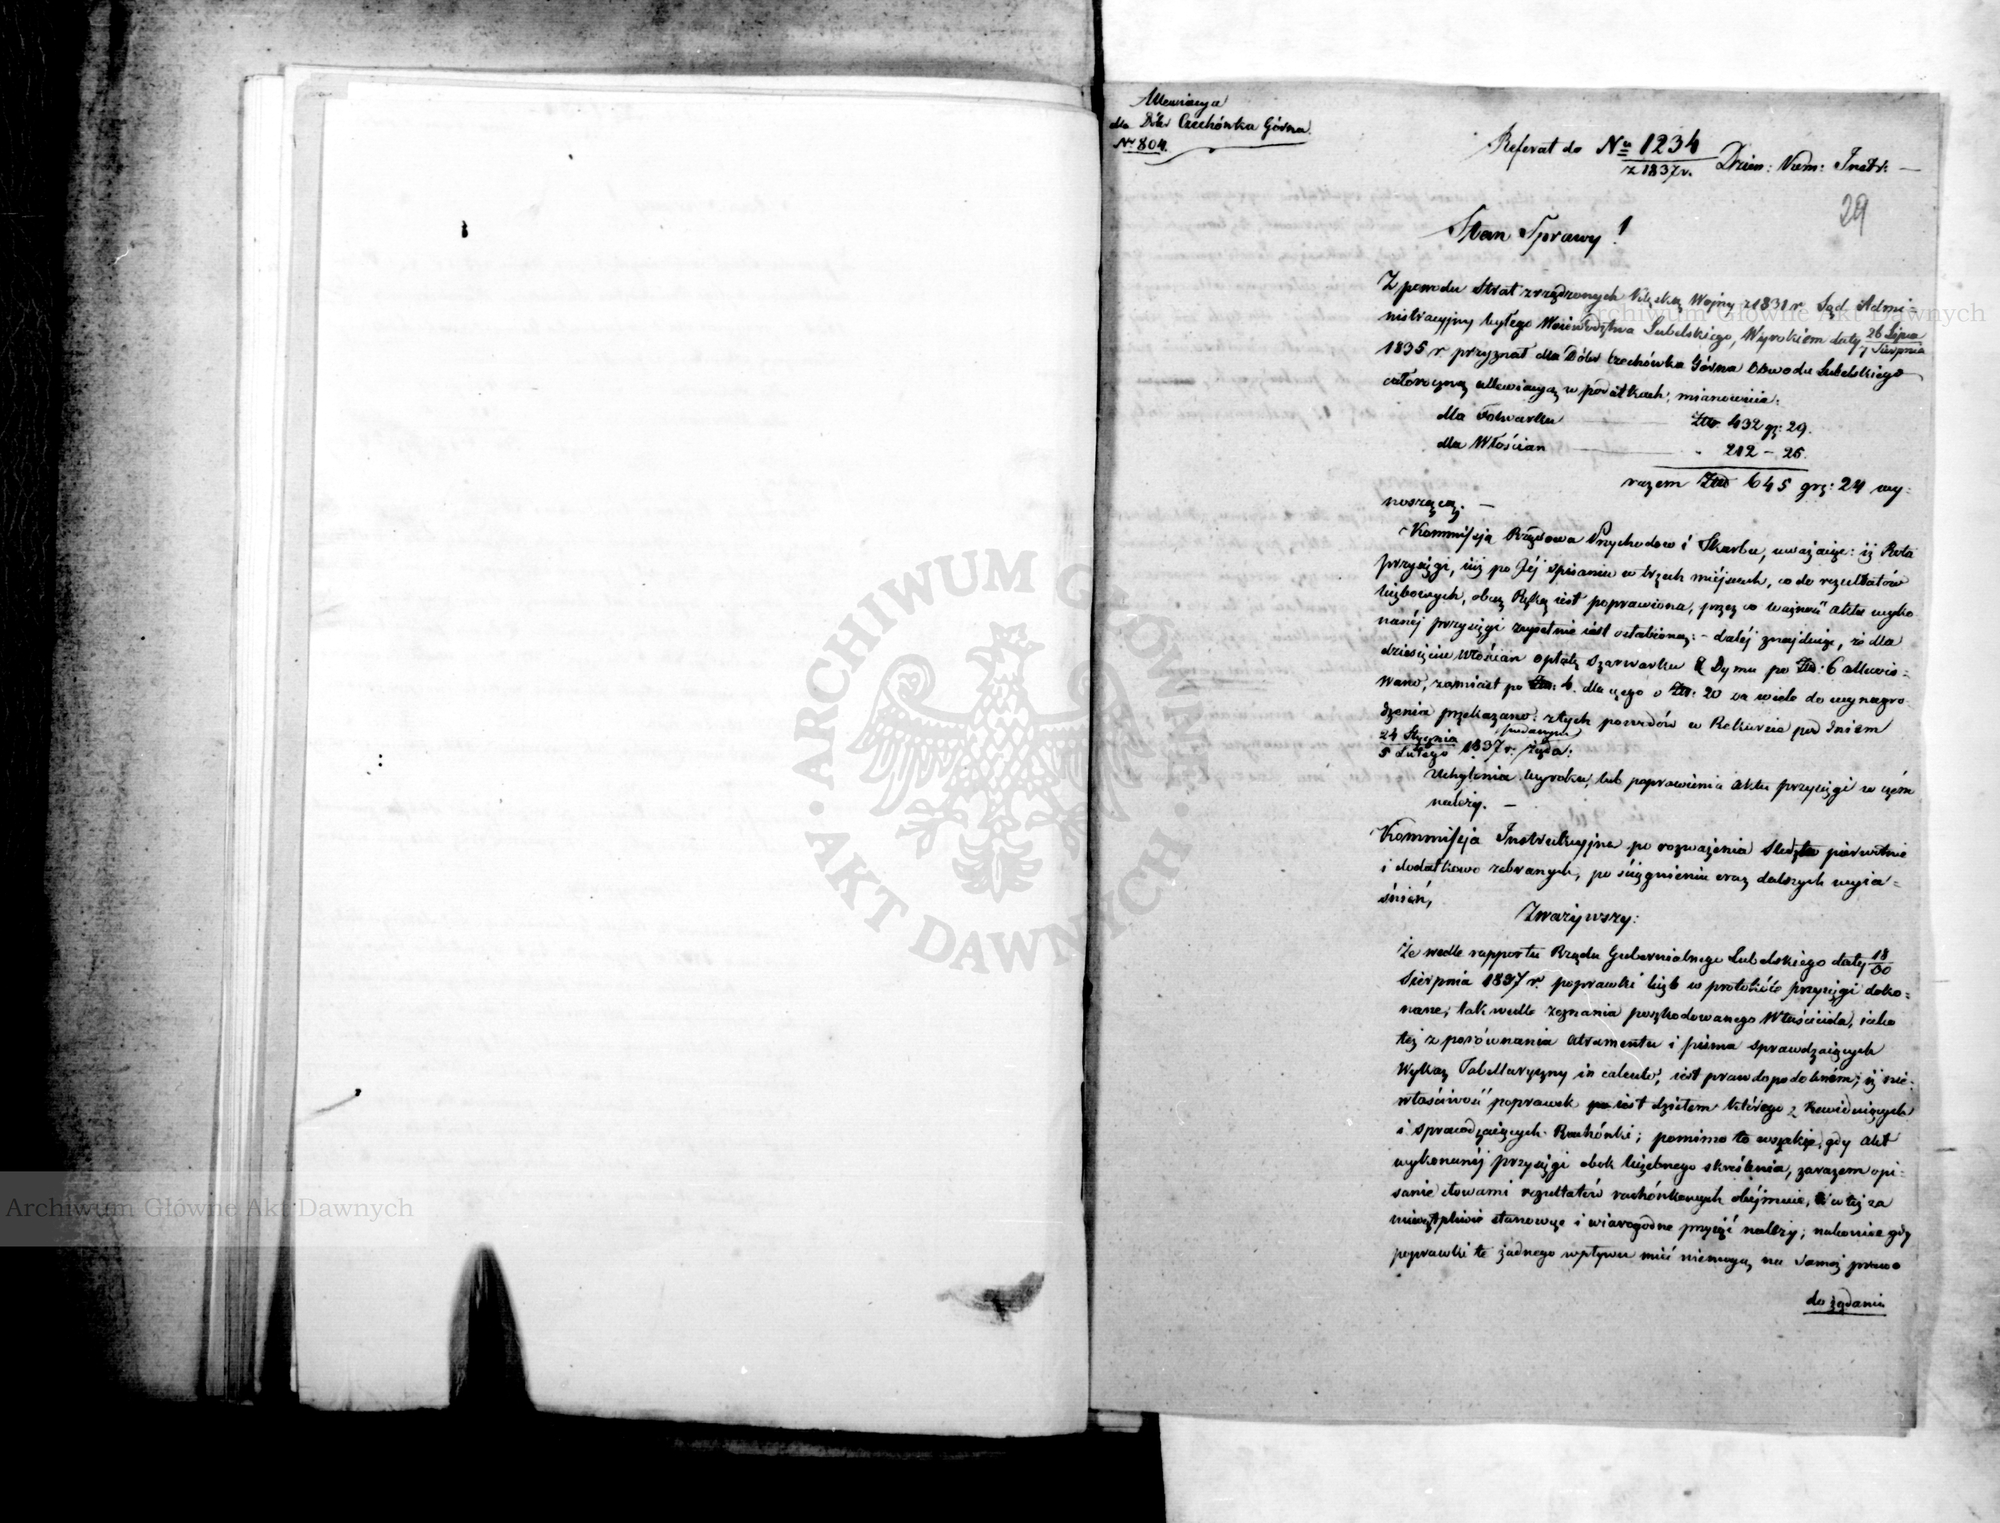 Allewiacya
dla Dóbr Czechówka Górna.
Nr 804.
Referat do Nru 1234 Dzien: Kom: Instr: —
z 1837 r.
29
Stan Sprawy!
Z powodu Strat zrządzonych klęską Wojny z 1831 r. Sąd Admi-
nistracyjny byłego Województwa Lubelskiego, Wyrokiem daty 26 Lipca / 7 Sierpnia
1835 r. przyznał dla Dóbr Czechówka Górna Obwodu Lubelskiego
całoroczną allewiacyą w podatkach; mianowicie:
dla Folwarku Złp. 432 gr: 29.
dla Włościan " 212 – 25.
razem Złp 645 grz: 24 wy-
noszącą. —
Kommissja Rządowa Przychodów i Skarbu, uważaiąc: iż Rota
przysięgi, iuż po Jéj spisaniu w trzech miejscach, co do rezultatów
liczbowych, obcą Ręką iest poprawiona, przez co ważność aktu wyko-
nanéj przysięgi zupełnie iest osłabioną: – daléj znajduiąc, że dla
dziesięciu Włościan opłatę Szarwarku z Dymu po Złp. 6 allewio-
wano, zamiast po Złp. 4. dla czego o Złp. 20 za wiele do wynagro-
dzenia przekazano: z tych powodów w Rekursie pod dniem
24 Stycznia / 5 Lutego 1837 r. podanym żąda:
Uchylenia wyroku, lub poprawienia aktu przysięgi w czém
należy. —
Kommissja Instrukcyjna po rozważeniu śledztw pierwotnie
i dodatkowo zebranych, po ściągnieniu oraz dalszych wyia-
śnień,
Zważywszy:
Że wedle rapportu Rządu Gubernialnego Lubelskiego daty 18/30
Sierpnia 1837 r. poprawki liczb w protokóle przysięgi doko-
nane, tak wedle zeznania poszkodowanego Właściciela, iako
też z porównania atramentu i pisma sprawdzaiących
Wykaz Tabellaryczny in calculo, iest prawdopodobném, iż nie-
właściwość poprawek iest dziełem którego z Rewiduiących
i sprawdzaiących Rachónki; pomimo to wszakże, gdy akt
wykonanéj przysięgi obok liczebnego skreślenia, zarazem opi-
sanie słowami rezultatów rachónkowych obéjmuie, te też za
niewątpliwie stanowcze i wiarogodne przyjąć należy; nakoniec gdy
poprawki te żadnego wpływu mieć niemogą na samo prawo
do żądania
ARCHIWUM GŁÓWNE · AKT DAWNYCH ·
Archiwum Główne Akt Dawnych
Archiwum Główne Akt Dawnych